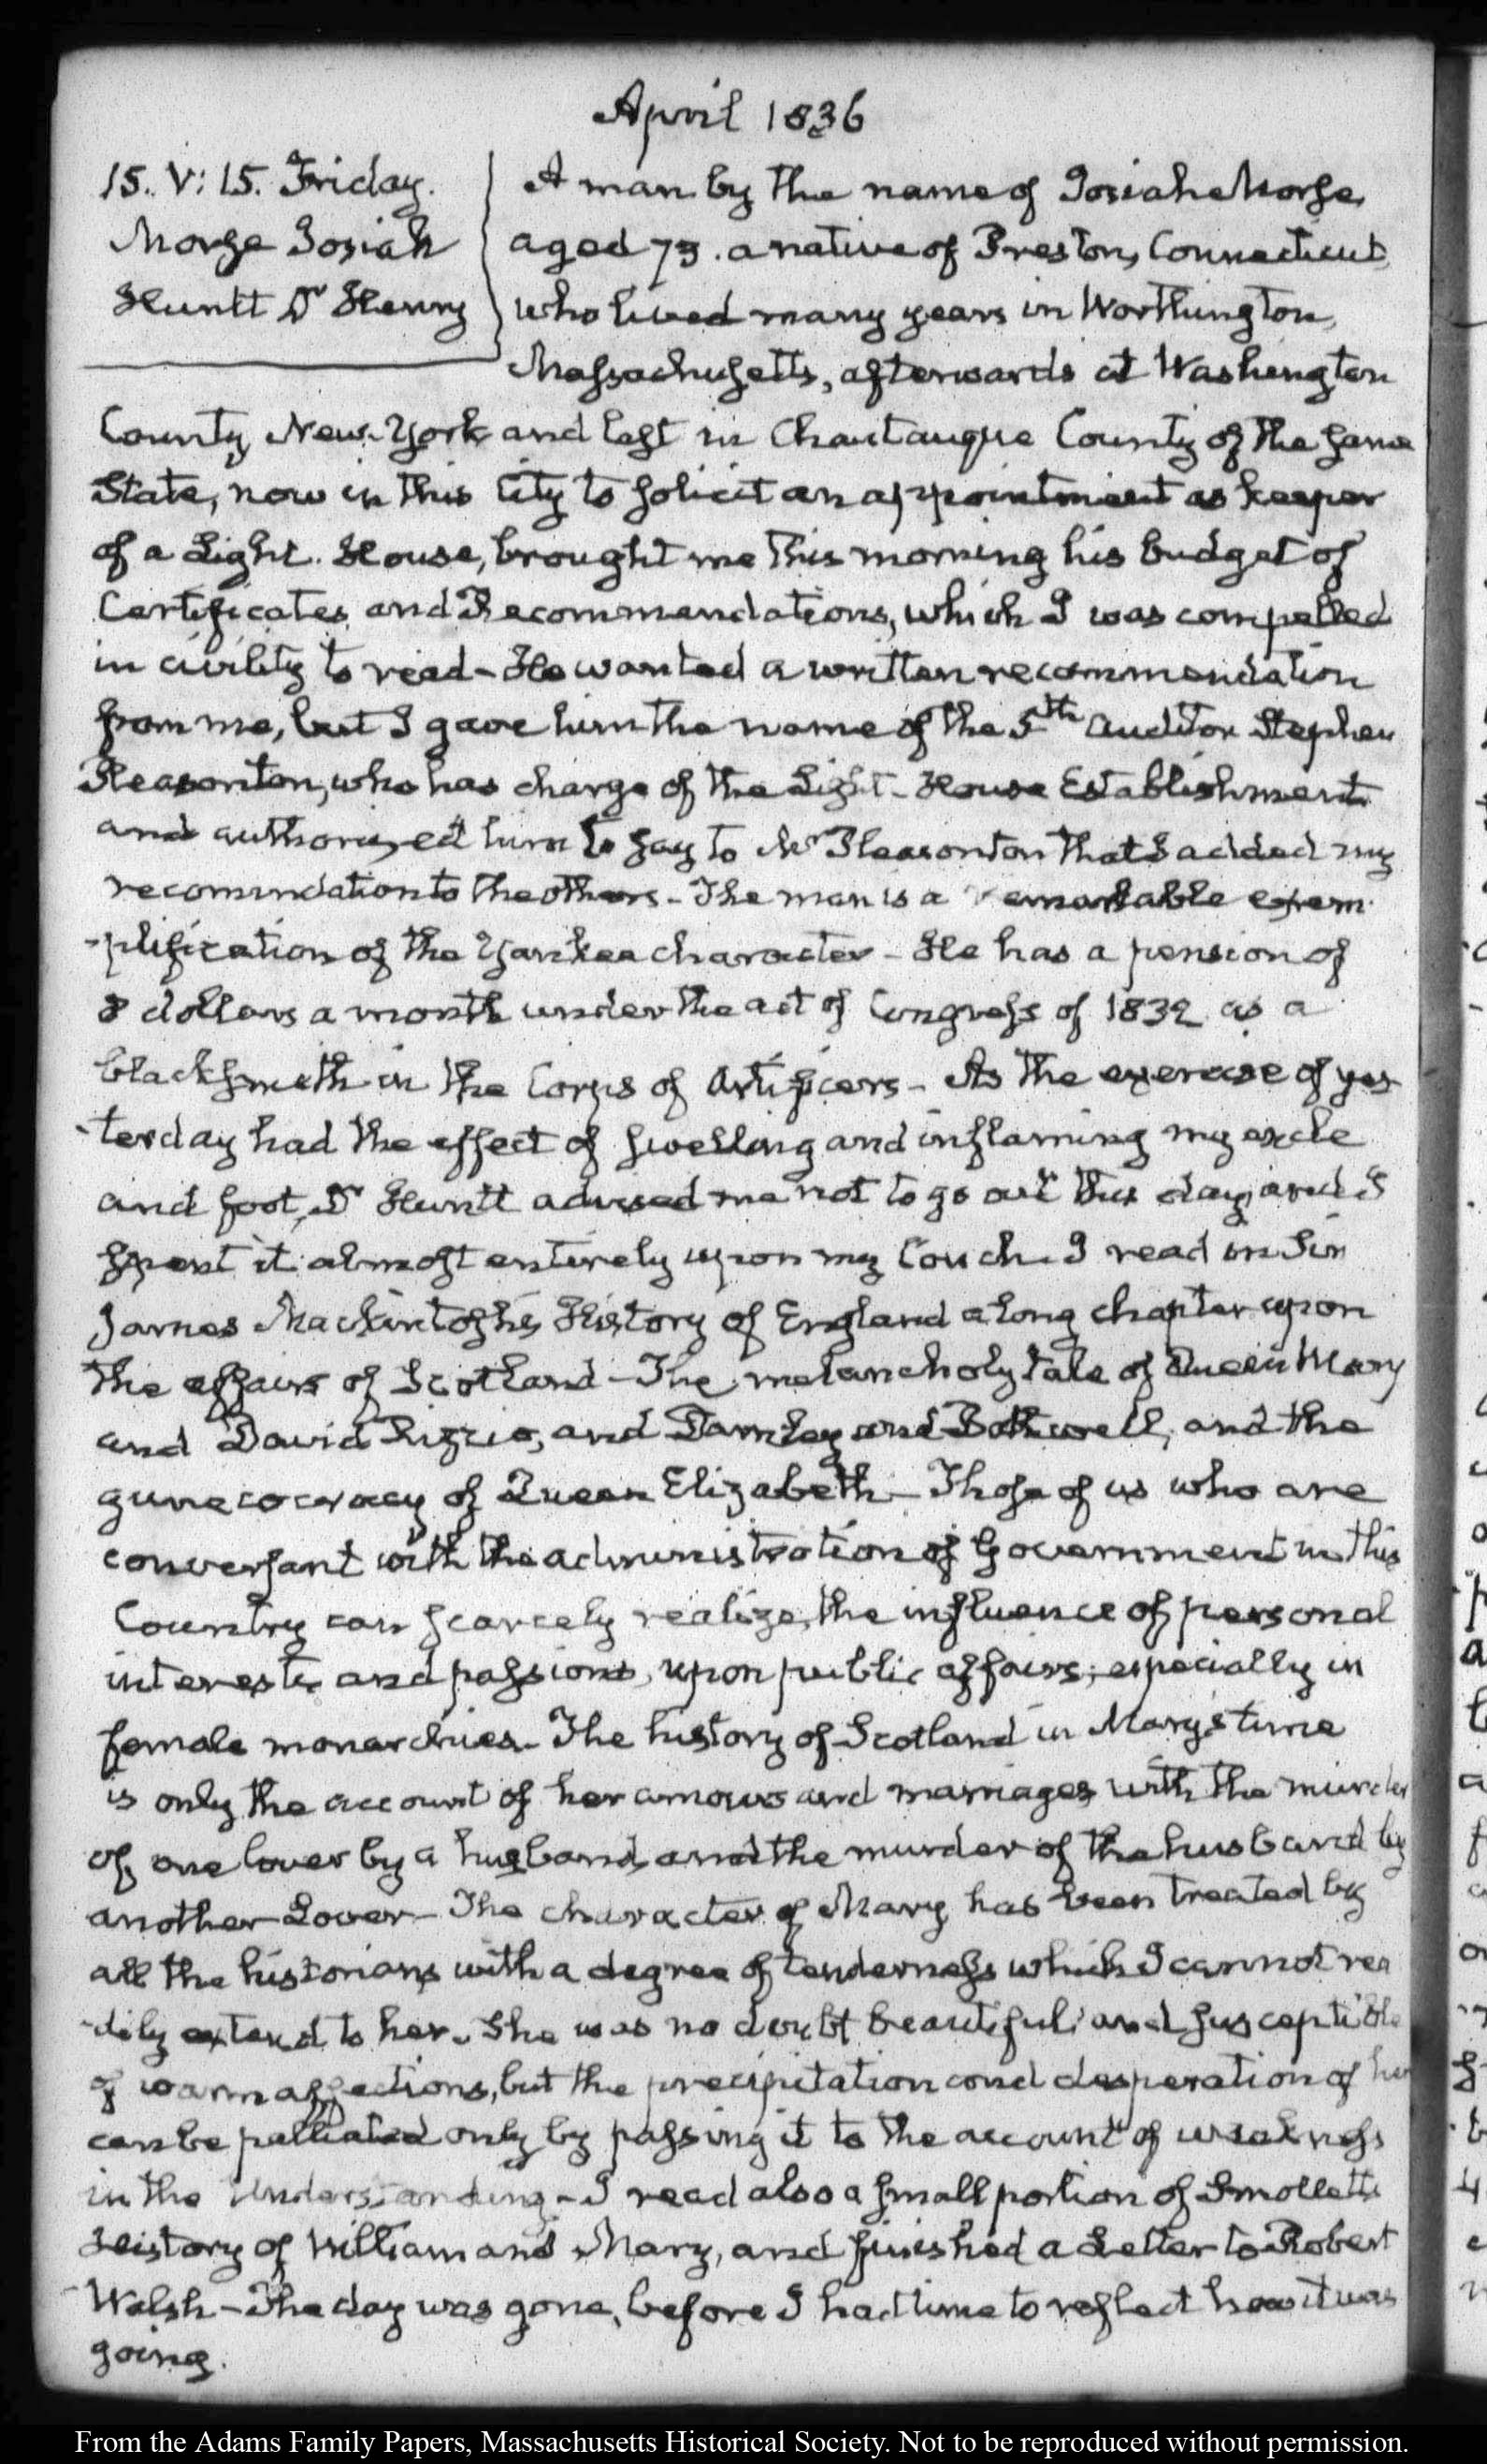 April 1836
15. V: 15. Friday.
Morse Josiah
Huntt Dr Henry
A man by the name of Josiah Morse,
aged 73. a native of Preston, Connecticut,
who lived many years in Worthington,
Massachusetts, afterwards at Washington
County New-York and last in Chautauque County of the same
State, now in this City to solicit an appointment as keeper
of a Light-House, brought me this morning his budget of
Certificates and Recommendations, which I was compelled
in civility to read - He wanted a written recommendation
from me, but I gave him the name of the 5th Auditor Stephen
Pleasonton, who has charge of the Light-House Establishment
and authorized him to say to Mr Pleasonton that I added my
recomindation to the others - The man is a remarkable exem-
-plification of the Yankee character - He has a pension of
8 dollars a month under the act of Congress of 1832 as a
blacksmith in the Corps of Artificers - As the exercise of yes-
-terday had the effect of swelling and inflaming my ancle
and foot, Dr Huntt advised me not to go out this day, and I
spent it almost entirely upon my Couch. I read in Sir
James Mackintosh's History of England a long chapter upon
the affairs of Scotland - The melancholy tale of Queen Mary
and David Rizzio, and Darnley and Bothwell, and the
gunecocracy of Queen Elizabeth - Those of us who are
conversant with the administration of Government in this
Country can scarcely realize, the influence of personal
interests and passions, upon public affairs; especially in
female monarchies. The history of Scotland in Mary's time
is only the account of her amours and marriages with the murder
of one lover by a husband, and the murder of the husband by
another Lover - The character of Mary has been treated by
all the historians with a degree of tenderness which I cannot rea
-dily extend to her. She was no doubt beautiful and susceptible
of warm affections, but the precipitation and desperation of her
can be palliated only by passing it to the account of weakness
in the Understanding - I read also a small portion of Smollett's
History of William and Mary, and finished a Letter to Robert
Walsh - The day was gone, before I had time to reflect how it was
going.
From the Adams Family Papers, Massachusetts Historical Society. Not to be reproduced without permission.